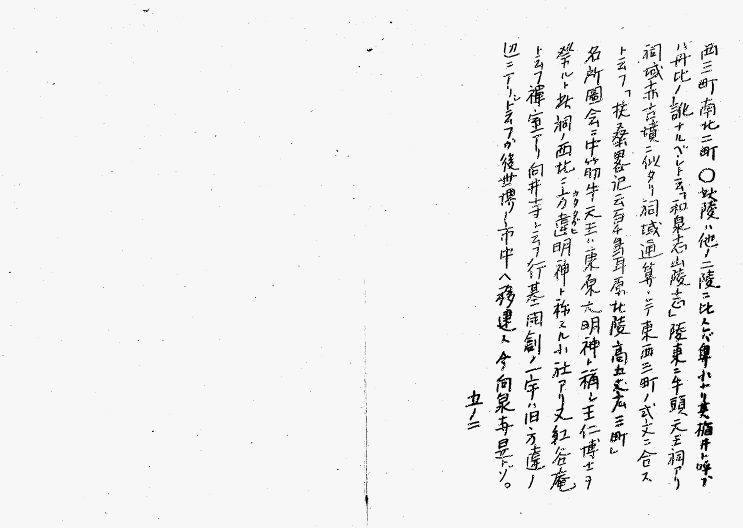 西三町南北二町 〇此陵ハ他ノ二陵ニ比スレバ卑小ナリ其楯井ト呼ブ
ハ丹比ノ訛ナルベシト云フ「和泉志山陵志」陵東ニ牛頭天王祠アリ
祠域亦古墳ニ似タリ祠域通算シテ東西三町ノ式文ニ合ス
ト云フ「扶桑畧記云百舌鳥耳原北陵高五丈広三町」
名所圖会ニ中筋牛天王ハ東原大明神ト稱シ王仁博士ヲ
祭ルト此祠ノ西北ニ方違明神ト称スル小社アリ又紅谷庵
カタタガヒ
ト云フ禪室アリ向井寺ト云フ行基開創ノ一宇ハ旧方違ノ
辺ニアリシト云フガ後世堺ノ市中ヘ移建ス今向泉寺是ナリ。
五ノ二